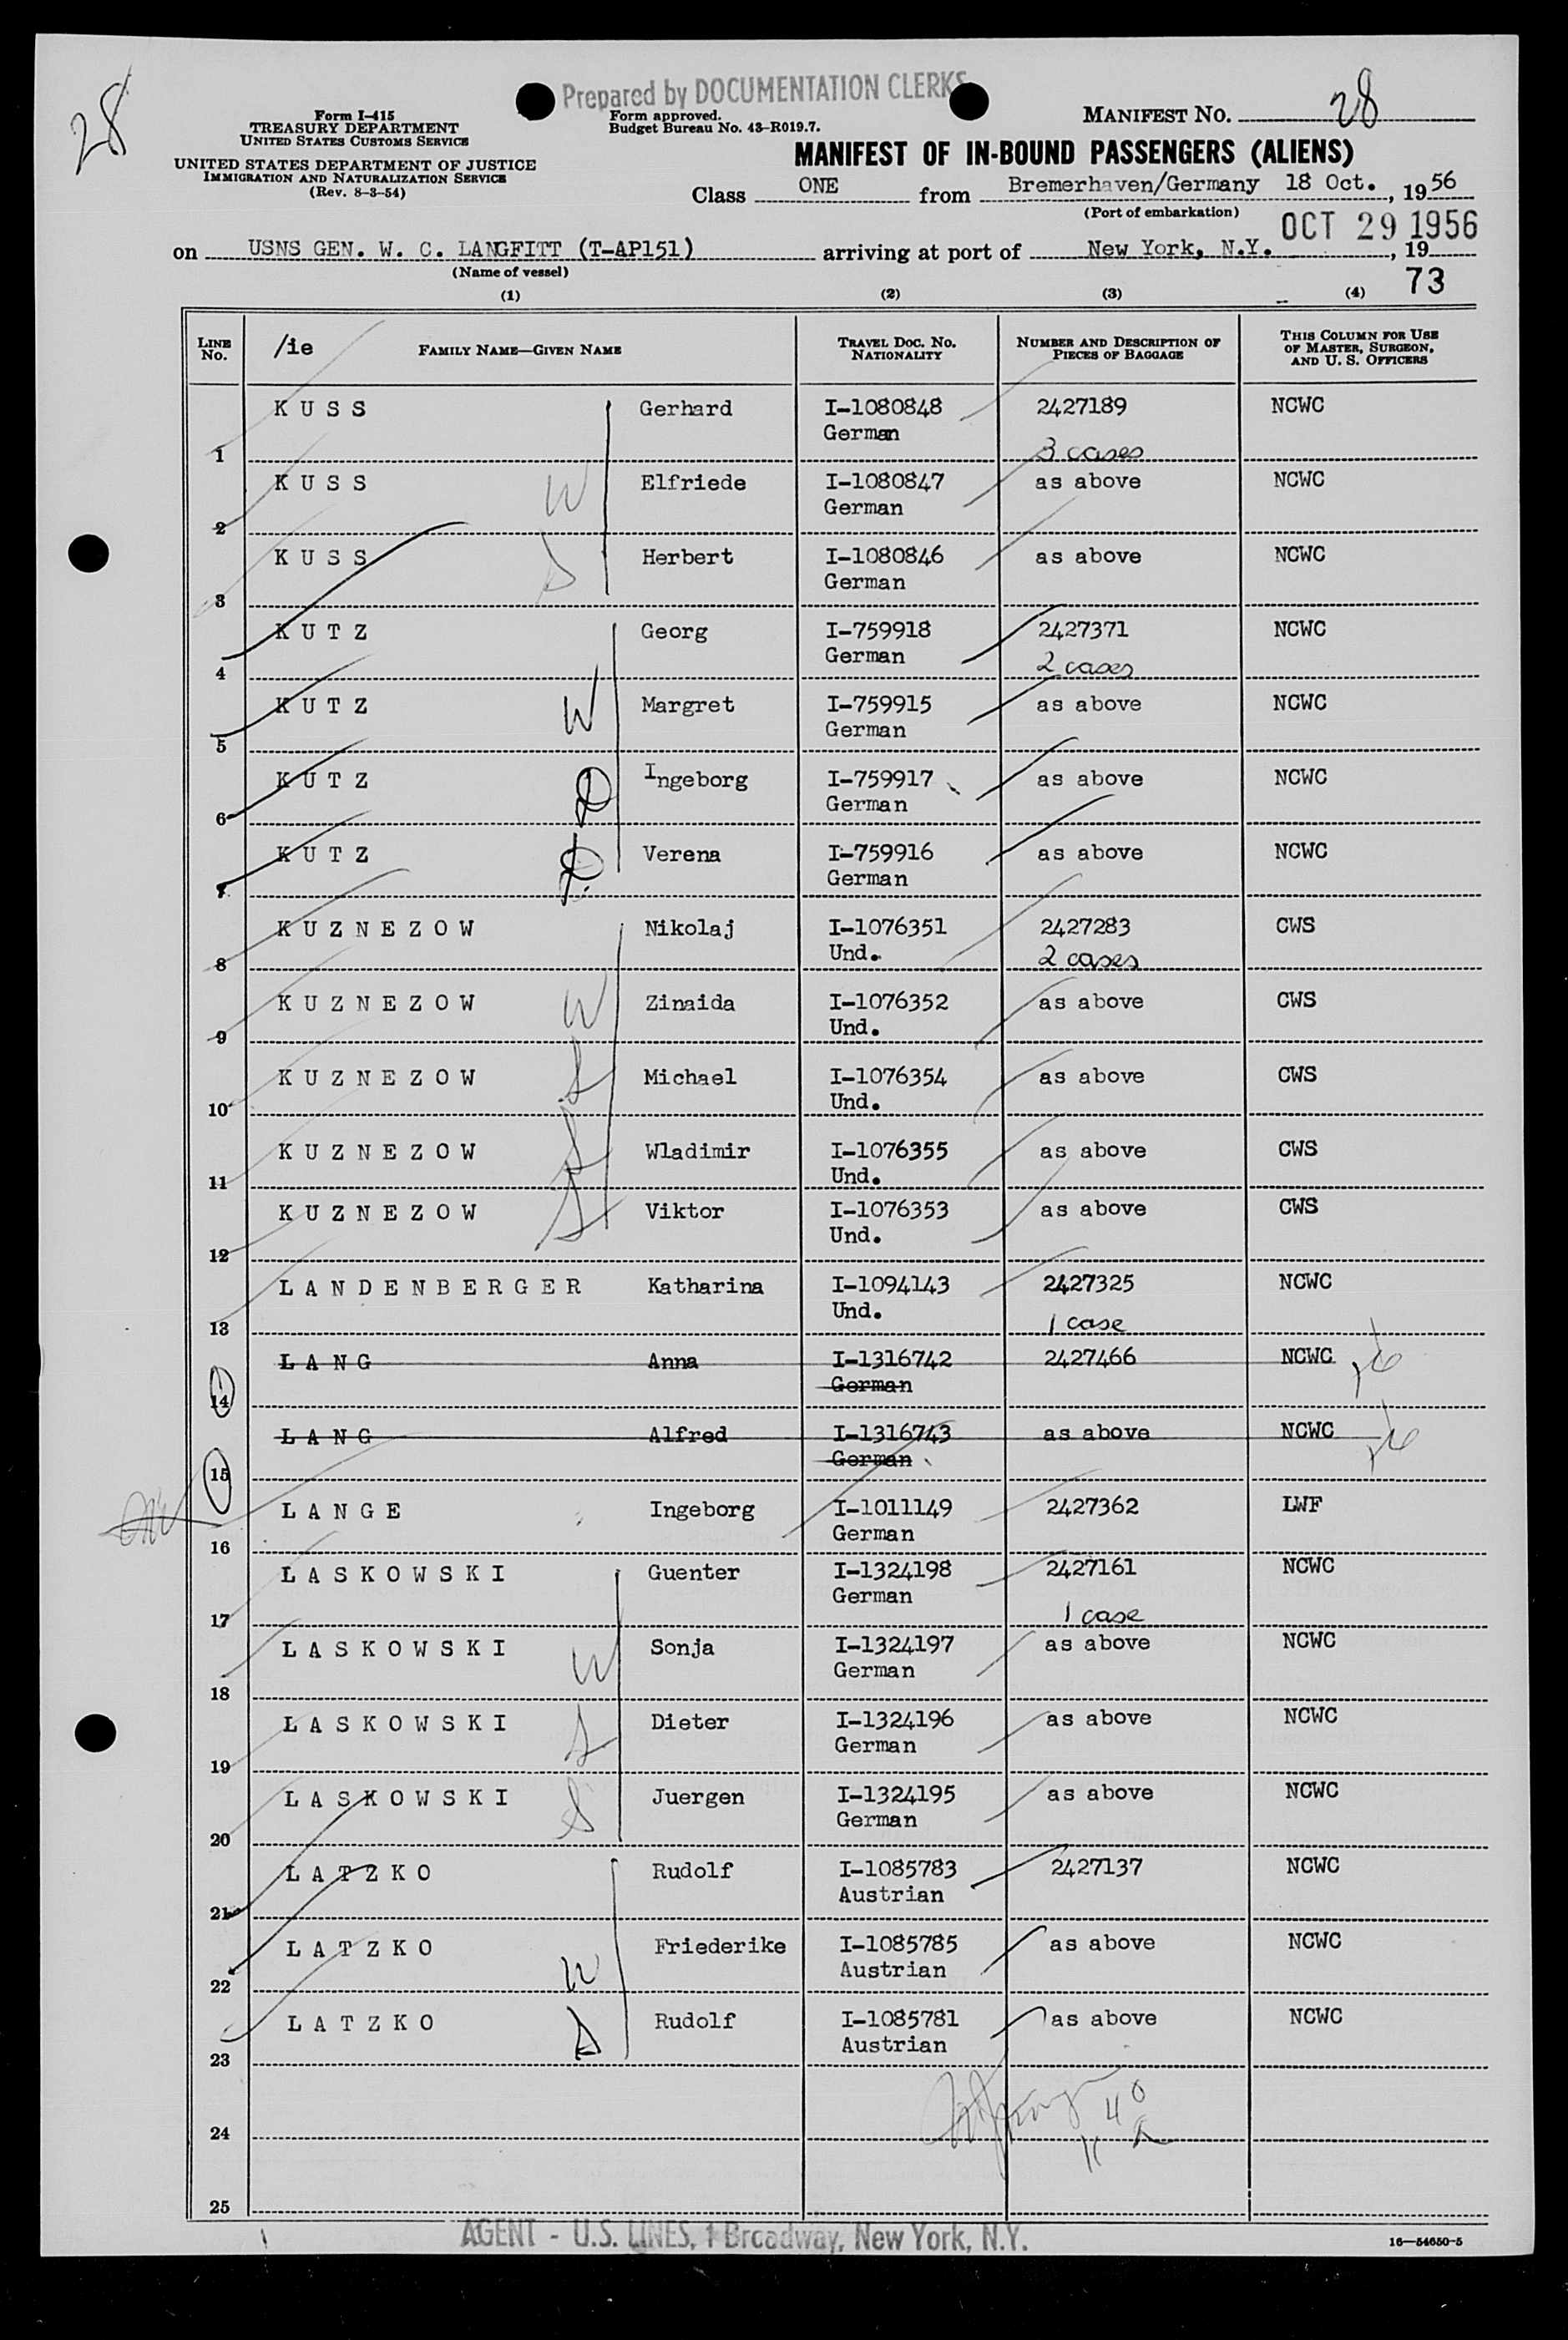 28
Prepared by DOCUMENTATION CLERKS
Form I-415
TREASURY DEPARTMENT
UNITED STATES CUSTOMS SERVICE
UNITED STATES DEPARTMENT OF JUSTICE
IMMIGRATION AND NATURALIZATION SERVICE
(Rev. 8-3-54)
Form approved.
Budget Bureau No. 43-R019.7.
MANIFEST NO. 28
MANIFEST OF IN-BOUND PASSENGERS (ALIENS)
Class ONE from Bremerhaven/Germany 18 Oct., 1956
(Port of embarkation)
OCT 29 1956
on USNS GEN. W. C. LANGFITT (T-AP151) arriving at port of New York, N.Y., 19
(Name of vessel)
73
(1) (2) (3) (4)
LINE No. /ie FAMILY NAME—GIVEN NAME TRAVEL DOC. NO. NATIONALITY NUMBER AND DESCRIPTION OF PIECES OF BAGGAGE THIS COLUMN FOR USE OF MASTER, SURGEON, AND U. S. OFFICERS
K U S S Gerhard I-1080848 2427189 NCWC
German
1 3 cases
K U S S W Elfriede I-1080847 as above NCWC
German
2
K U S S S Herbert I-1080846 as above NCWC
German
3
K U T Z Georg I-759918 2427371 NCWC
German
4 2 cases
K U T Z W Margret I-759915 as above NCWC
German
5
K U T Z D Ingeborg I-759917 as above NCWC
German
6
K U T Z D Verena I-759916 as above NCWC
German
7
K U Z N E Z O W Nikolaj I-1076351 2427283 CWS
Und.
8 2 cases
K U Z N E Z O W W Zinaida I-1076352 as above CWS
Und.
9
K U Z N E Z O W S Michael I-1076354 as above CWS
Und.
10
K U Z N E Z O W S Wladimir I-1076355 as above CWS
Und.
11
K U Z N E Z O W S Viktor I-1076353 as above CWS
Und.
12
L A N D E N B E R G E R Katharina I-1094143 2427325 NCWC
Und.
13 1 case
L A N G Anna I-1316742 2427466 NCWC
German
14
L A N G Alfred I-1316743 as above NCWC
German
15
L A N G E Ingeborg I-1011149 2427362 LWF
German
16
L A S K O W S K I Guenter I-1324198 2427161 NCWC
German
17 1 case
L A S K O W S K I W Sonja I-1324197 as above NCWC
German
18
L A S K O W S K I S Dieter I-1324196 as above NCWC
German
19
L A S K O W S K I S Juergen I-1324195 as above NCWC
German
20
L A T Z K O Rudolf I-1085783 2427137 NCWC
Austrian
21
L A T Z K O W Friederike I-1085785 as above NCWC
Austrian
22
L A T Z K O S Rudolf I-1085781 as above NCWC
Austrian
23
24
25
AGENT - U.S. LINES, 1 Broadway, New York, N.Y.
16—54650-5